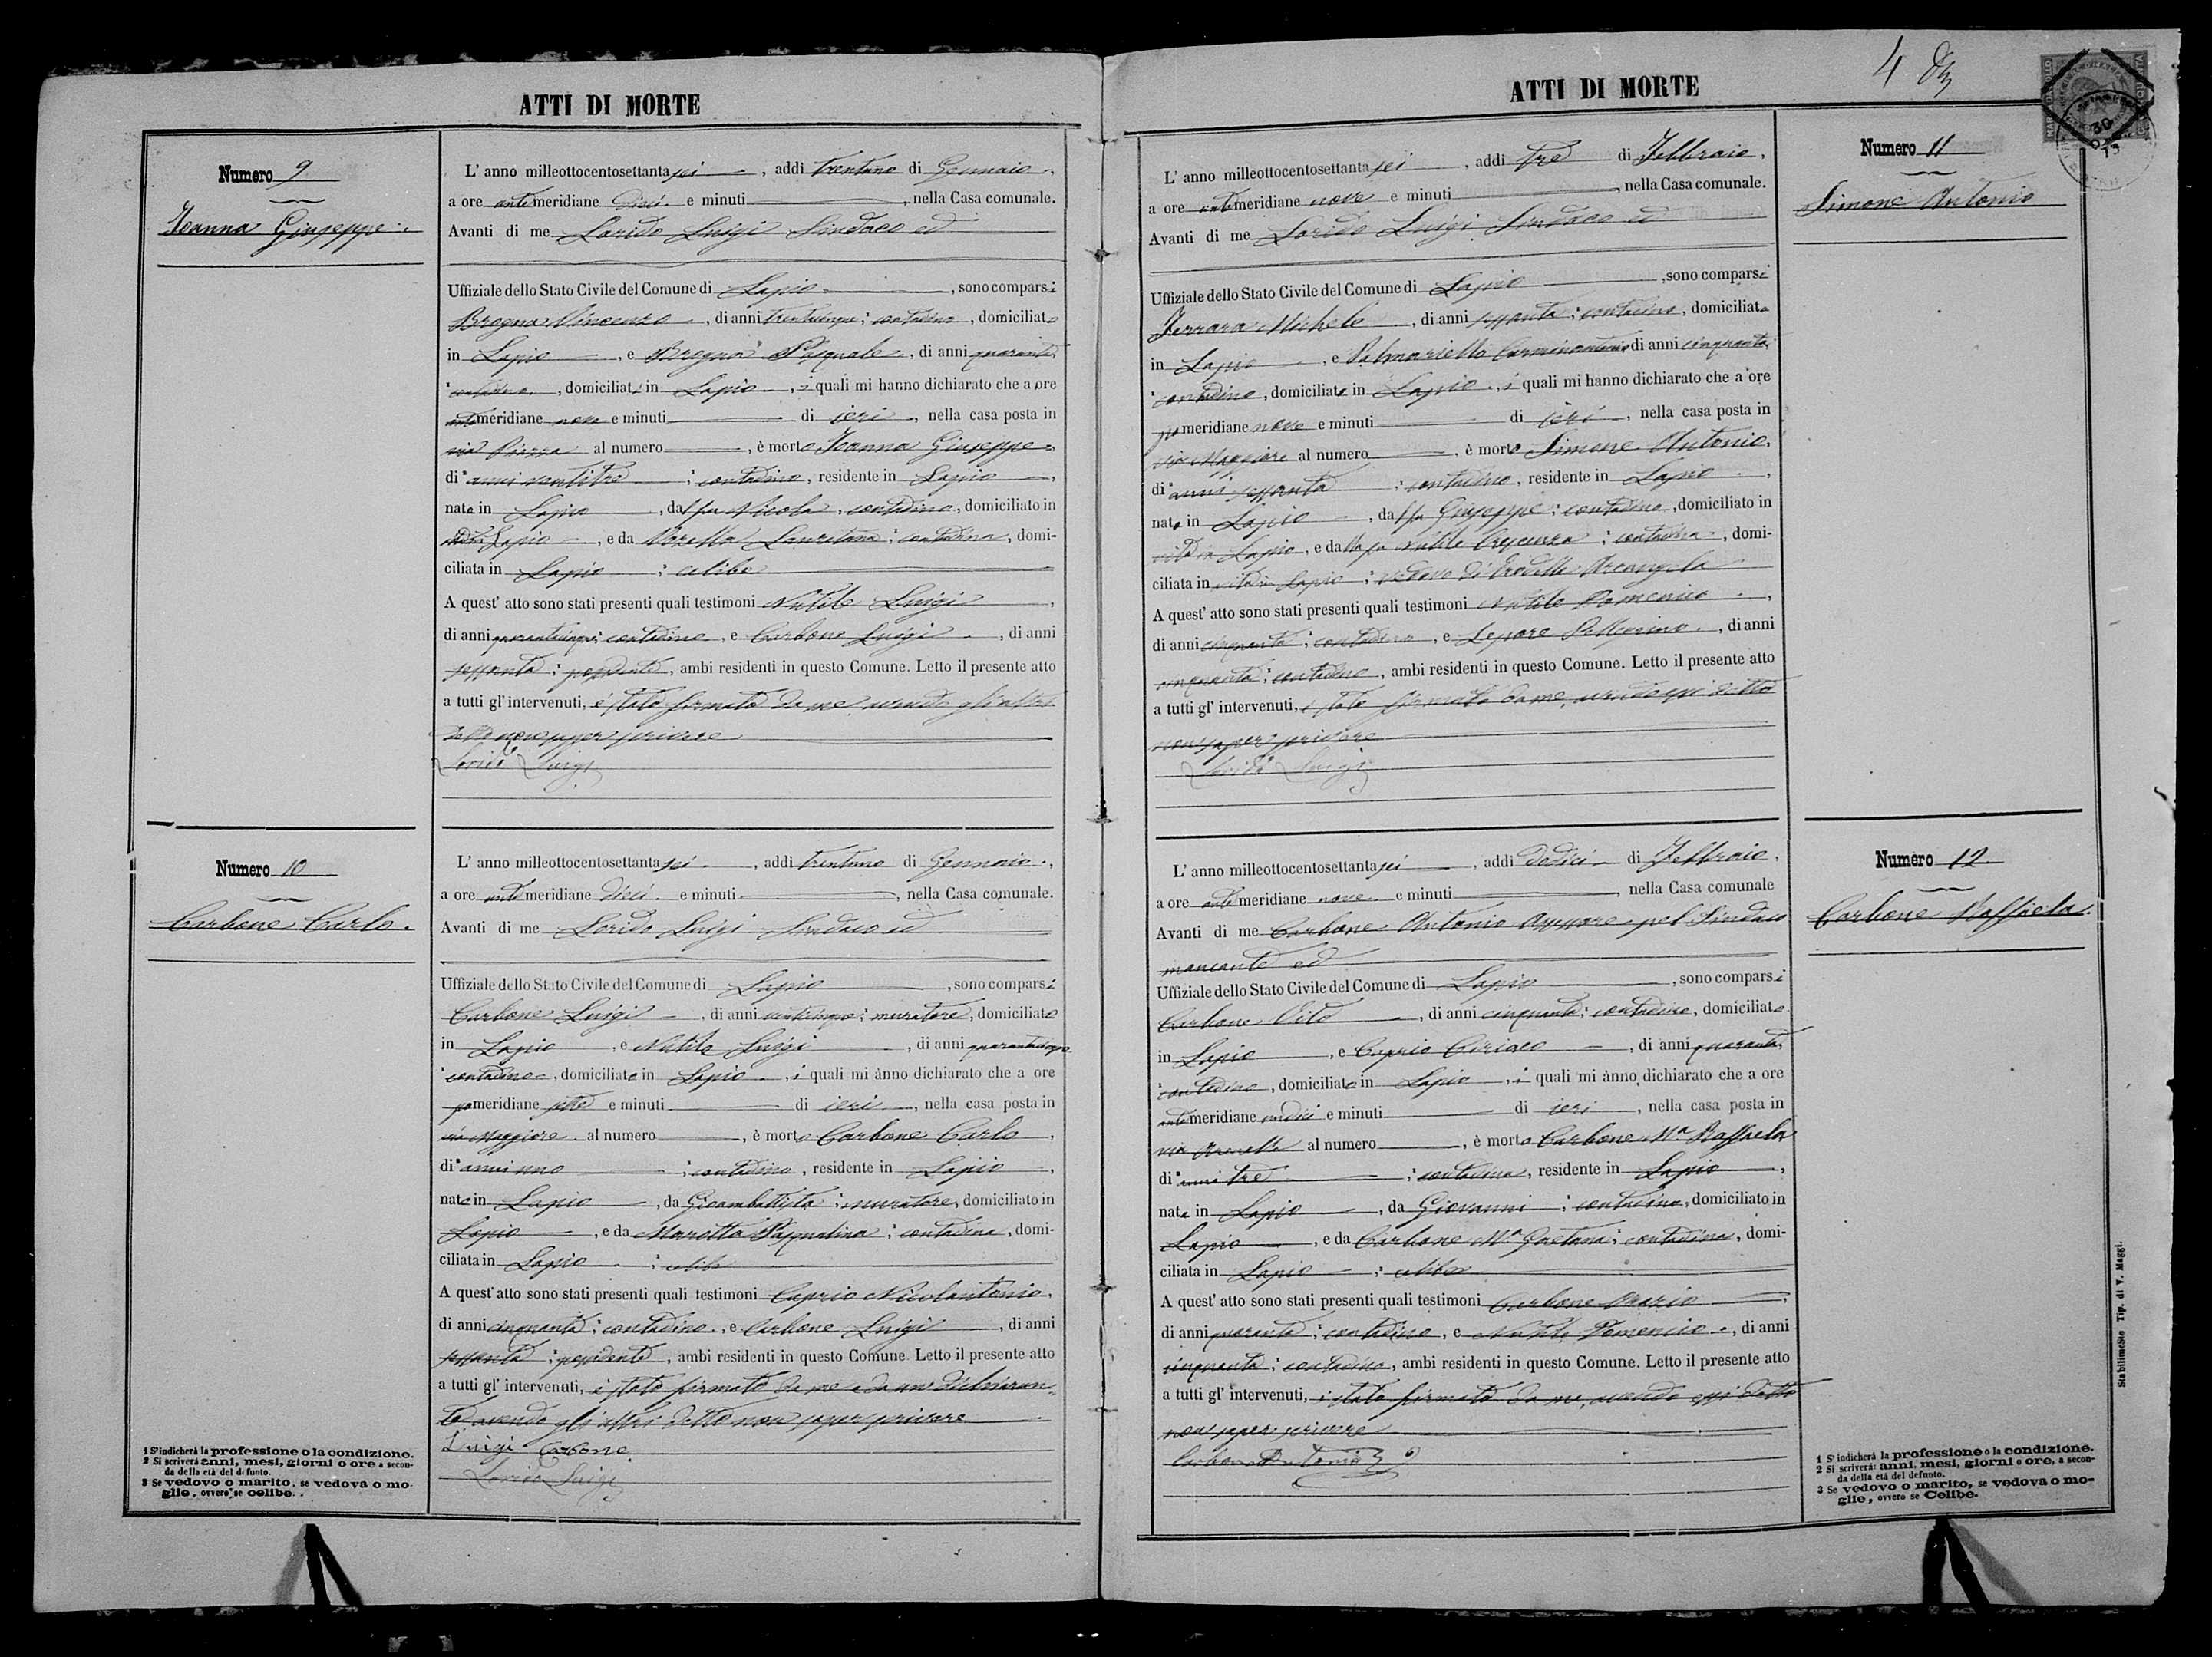 ATTI DI MORTE
Numero 9
Joanna Giuseppe.
L' anno milleottocentosettanta sei, addi trentuno di Gennaio,
a ore antemeridiane dieci e minuti, nella Casa comunale.
Avanti di me Lorido Luigi Sindaco ed
Uffiziale dello Stato Civile del Comune di Lapio, sono comparsi
Brogna Vincenzo, di anni trentacinque; contadino, domiciliato
in Lapio, e Brogna Pasquale, di anni quaranta,
contadino, domiciliato in Lapio, i quali mi hanno dichiarato che a ore
antemeridiane nove e minuti di ieri, nella casa posta in
via Piazza al numero, è morto Joanna Giuseppe,
di anni ventitre; contadino, residente in Lapio,
nato in Lapio, dal fu Nicola, contadino, domiciliato in
Lapio, e da Lauritana; contadina, domi-
ciliata in Lapio; celibe
A quest' atto sono stati presenti quali testimoni Nutile Luigi,
di anni quarantacinque; contadino, e Carbone Luigi, di anni
sessanta; possidente, ambi residenti in questo Comune. Letto il presente atto
a tutti gl' intervenuti, è stato firmato da me avendo gli altri
detto non saper scrivere
Lorido Luigi
Numero 10
Carbone Carlo.
L' anno milleottocentosettanta sei, addi trentuno di Gennaio,
a ore antemeridiane dieci e minuti, nella Casa comunale.
Avanti di me Lorido Luigi Sindaco ed
Uffiziale dello Stato Civile del Comune di Lapio, sono comparsi
Carbone Luigi, di anni venticinque; muratore, domiciliato
in Lapio, e Nutile Luigi, di anni quarantacinque
contadino, domiciliato in Lapio, i quali mi ànno dichiarato che a ore
pomeridiane sette e minuti di ieri, nella casa posta in
via Maggiore al numero, è morto Carbone Carlo,
di anni uno; contadino, residente in Lapio,
nato in Lapio, da Gioambattista; muratore, domiciliato in
Lapio, e da Marotta Pasqualina; contadina, domi-
ciliata in Lapio; celibe
A quest' atto sono stati presenti quali testimoni Caprio Nicolantonio,
di anni cinquanta; contadino, e Carbone Luigi, di anni
sessanta; possidente, ambi residenti in questo Comune. Letto il presente atto
a tutti gl' intervenuti, è stato firmato da me e da un dichiaran-
te avendo gli altri detto non saper scrivere
Luigi Carbone
Lorido Luigi
1 S' indicherà la professione o la condizione.
2 Si scriverà anni, mesi, giorni o ore a secon-
da della età del defunto.
3 Se vedovo o marito, se vedova o mo-
glie, ovvero se celibe.
ATTI DI MORTE
4
Numero 11
Simone Antonio
L' anno milleottocentosettanta sei, addi tre di Febbraio,
a ore antemeridiane nove e minuti, nella Casa comunale.
Avanti di me Lorido Luigi Sindaco ed
Uffiziale dello Stato Civile del Comune di Lapio, sono comparsi
Ferrara Michele, di anni sessanta; contadino, domiciliato
in Lapio, e Palmariello Carminantonio di anni cinquanta,
contadino, domiciliato in Lapio, i quali mi hanno dichiarato che a ore
pomeridiane nove e minuti di ieri, nella casa posta in
via Maggiore al numero, è morto Simone Antonio,
di anni sessanta; contadino, residente in Lapio,
nato in Lapio, dal fu Giuseppe; contadino, domiciliato in
vita in Lapio, e dalla fu Nutile Crescenza; contadina, domi-
ciliata in vita in Lapio; vedovo di Arcangela
A quest' atto sono stati presenti quali testimoni Nutile Domenico,
di anni cinquanta; contadino, e Lepore Pellegrino, di anni
cinquanta; contadino, ambi residenti in questo Comune. Letto il presente atto
a tutti gl' intervenuti, è stato firmato da me, avendo essi detto
non saper scrivere
Lorido Luigi
Numero 12
Carbone Raffaela.
L' anno milleottocentosettanta sei, addi dodici di Febbraio,
a ore antemeridiane nove e minuti, nella Casa comunale
Avanti di me Carbone Antonio Assessore pel Sindaco
mancante ed
Uffiziale dello Stato Civile del Comune di Lapio, sono comparsi
Carbone Vito, di anni cinquanta; contadino, domiciliato
in Lapio, e Caprio Ciriaco, di anni quaranta,
contadino, domiciliato in Lapio, i quali mi ànno dichiarato che a ore
antemeridiane undici e minuti di ieri, nella casa posta in
via al numero, è morta Carbone Mª Raffaela
di anni tre; contadina, residente in Lapio,
nata in Lapio, da Giovanni; contadino, domiciliato in
Lapio, e da Carbone Mª Gaetana; contadina, domi-
ciliata in Lapio; celibe
A quest' atto sono stati presenti quali testimoni Carbone Orazio,
di anni quaranta; contadino, e Nutile Domenico, di anni
cinquanta; contadino, ambi residenti in questo Comune. Letto il presente atto
a tutti gl' intervenuti, è stato firmato da me, avendo essi detto
non saper scrivere
Carbone Antonio
1 S' indicherà la professione o la condizione.
2 Si scriverà: anni, mesi, giorni o ore, a secon-
da della età del defunto.
3 Se vedovo o marito, se vedova o mo-
glie, ovvero se Celibe.
Stabilimento Tip. di V. Maggi.